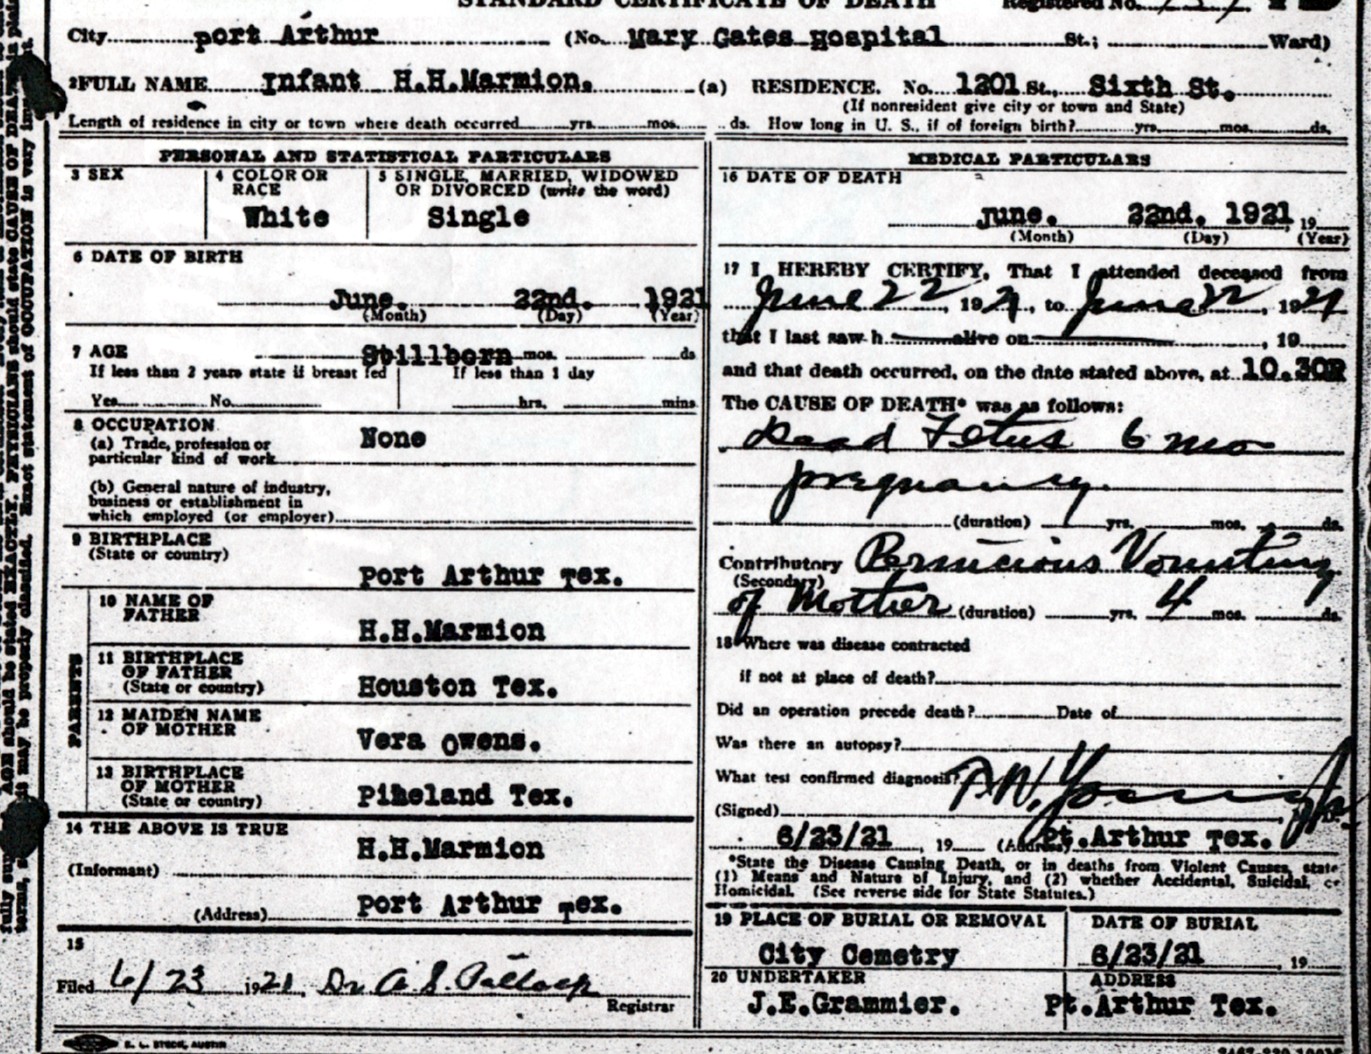 STANDARD CERTIFICATE OF DEATH Registered No.
City port Arthur (No. Mary Gates Hospital St.; Ward)
2 FULL NAME Infant H.H.Marmion. (a) RESIDENCE. No. 1201 St., Sixth St.
(If nonresident give city or town and State)
Length of residence in city or town where death occurred yrs. mos. ds. How long in U. S., if of foreign birth? yrs. mos. ds.
PERSONAL AND STATISTICAL PARTICULARS
3 SEX
4 COLOR OR RACE
White
5 SINGLE, MARRIED, WIDOWED
OR DIVORCED (write the word)
Single
6 DATE OF BIRTH
June. 22nd. 1921
(Month) (Day) (Year)
7 AGE Stillborn mos. ds
If less than 2 years state if breast fed If less than 1 day
Yes No. hrs. mins
8 OCCUPATION
(a) Trade, profession or
particular kind of work
None
(b) General nature of industry,
business or establishment in
which employed (or employer)
9 BIRTHPLACE
(State or country)
Port Arthur Tex.
PARENTS
10 NAME OF
FATHER
H.H.Marmion
11 BIRTHPLACE
OF FATHER
(State or country)
Houston Tex.
12 MAIDEN NAME
OF MOTHER
Vera Owens.
13 BIRTHPLACE
OF MOTHER
(State or country)
Pikeland Tex.
14 THE ABOVE IS TRUE
H.H.Marmion
(Informant)
(Address) Port Arthur Tex.
15
Filed 6/23 1921 Dr. A. S.
Registrar
MEDICAL PARTICULARS
16 DATE OF DEATH
June. 22nd. 1921, 19
(Month) (Day) (Year)
17 I HEREBY CERTIFY, That I attended deceased from
June 22, 1921, to June 22, 1921
that I last saw h alive on, 19
and that death occurred, on the date stated above, at 10.30P
The CAUSE OF DEATH* was as follows:
Dead Fetus 6 mo
pregnancy.
(duration) yrs. mos. ds.
Contributory Pernicious Vomiting
(Secondary)
of Mother (duration) yrs. 4 mos. ds.
18 Where was disease contracted
if not at place of death?
Did an operation precede death? Date of
Was there an autopsy?
What test confirmed diagnosis?
(Signed)
6/23/21, 19 (Address) Pt.Arthur Tex.
*State the Disease Causing Death, or in deaths from Violent Causes, state
(1) Means and Nature of Injury, and (2) whether Accidental, Suicidal, or
Homicidal. (See reverse side for State Statutes.)
19 PLACE OF BURIAL OR REMOVAL
City Cemetry
DATE OF BURIAL
6/23/21 19
20 UNDERTAKER
J.E.Grammier.
ADDRESS
Pt.Arthur Tex.
AGE should be stated EXACTLY. PHYSICIANS should state CAUSE OF DEATH in
may be properly classified. Exact statement of OCCUPATION is very